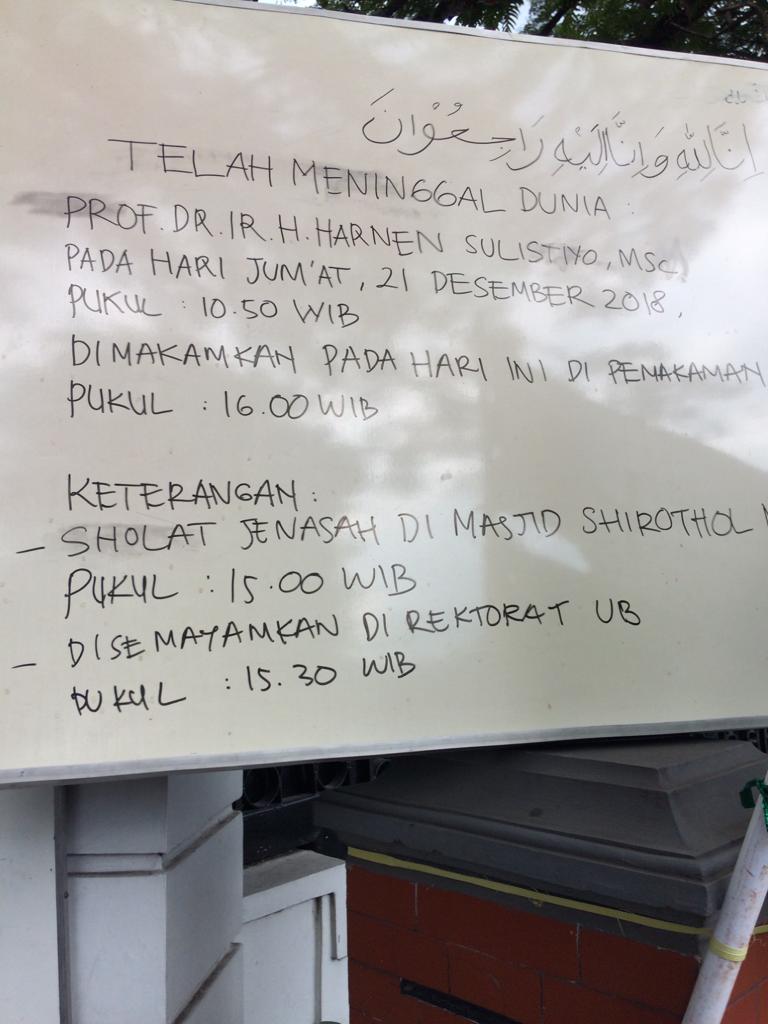 إِنَّا لِلَّهِ وَإِنَّا إِلَيْهِ رَاجِعُوْانَ
TELAH MENINGGAL DUNIA :
PROF. DR. IR. H. HARNEN SULISTIYO, MSc,
PADA HARI JUM'AT, 21 DESEMBER 2018,
PUKUL : 10.50 WIB
DIMAKAMKAN PADA HARI INI DI PEMAKAMAN
PUKUL : 16.00 WIB
KETERANGAN :
- SHOLAT JENASAH DI MASJID SHIROTHOL
PUKUL : 15.00 WIB
- DISEMAYAMKAN DI REKTORAT UB
PUKUL : 15.30 WIB